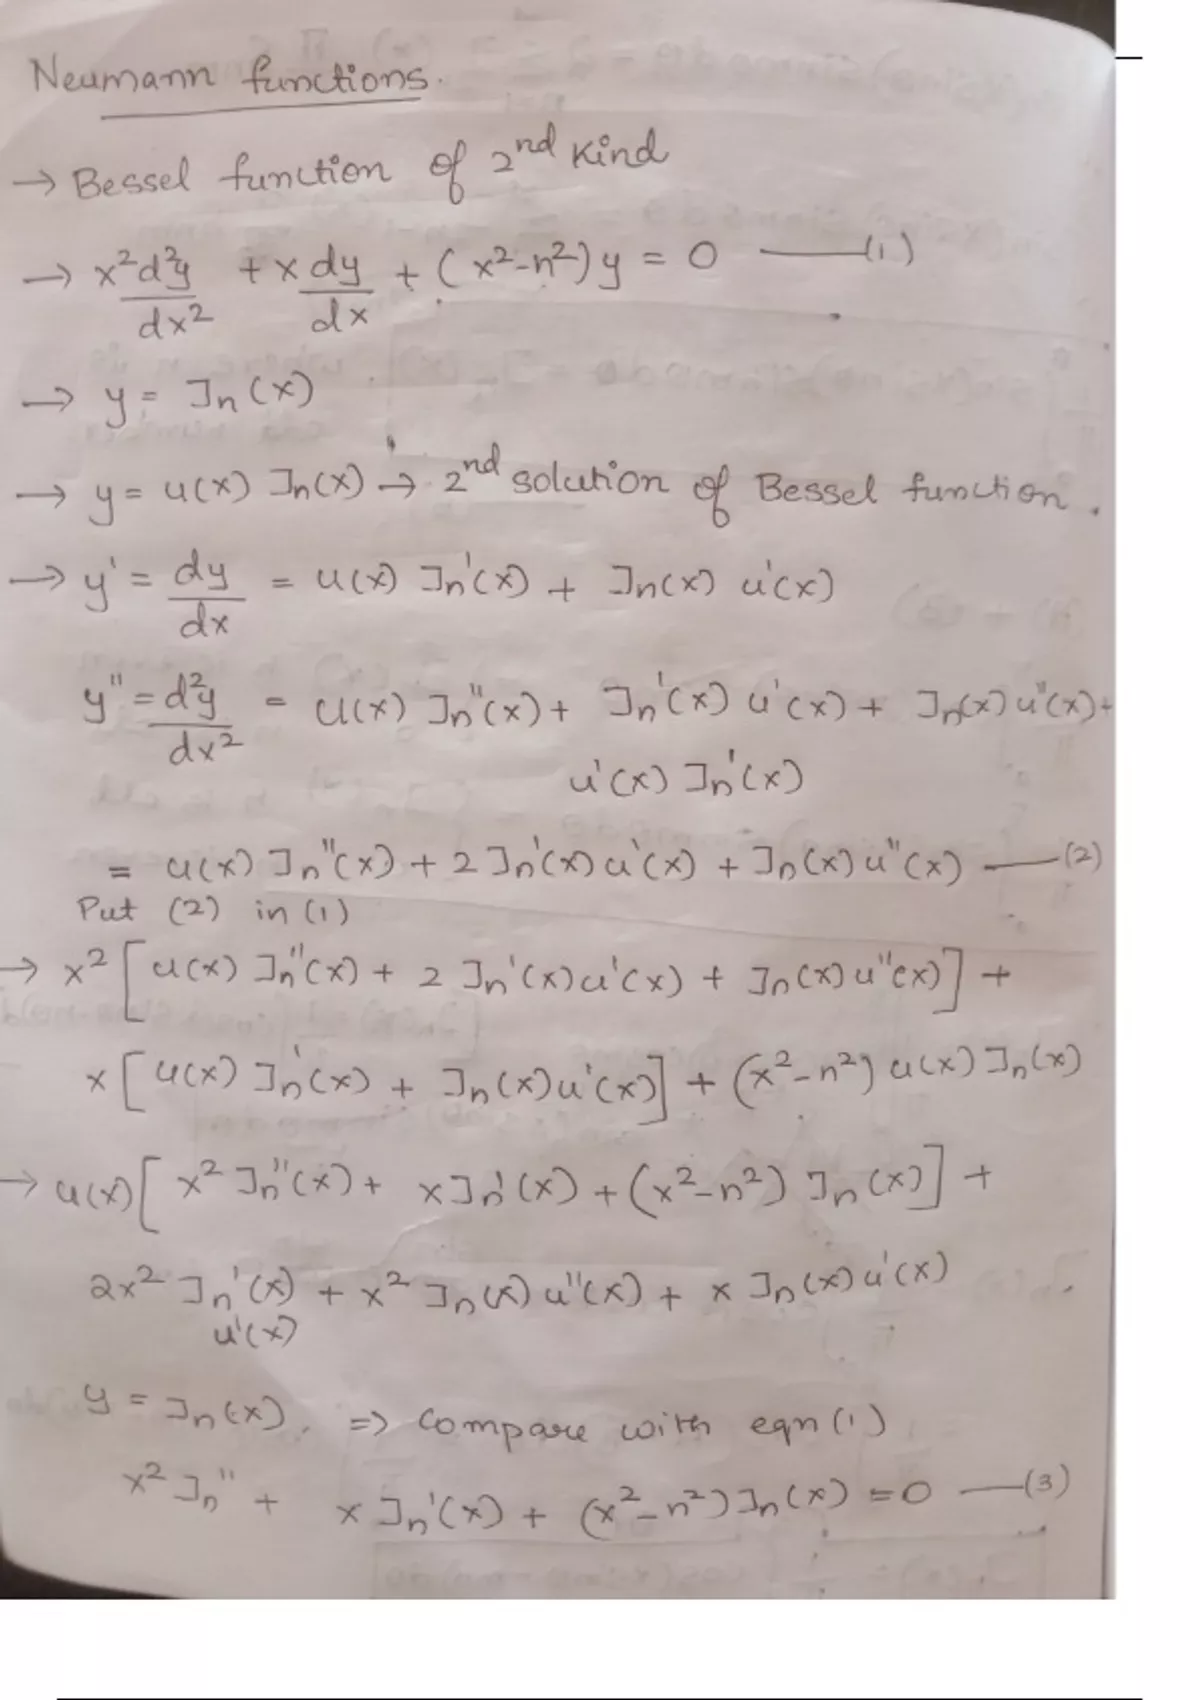 Neumann functions.
→ Bessel function of 2nd Kind
→ x² d²y/dx² + x dy/dx + (x²-n²) y = 0 —(1)
→ y = Jn(x)
→ y = u(x) Jn(x) → 2nd solution of Bessel function.
→ y' = dy/dx = u(x) Jn'(x) + Jn(x) u'(x)
y'' = d²y/dx² = u(x) Jn''(x) + Jn'(x) u'(x) + Jn(x) u''(x) +
u'(x) Jn'(x)
= u(x) Jn''(x) + 2 Jn'(x) u'(x) + Jn(x) u''(x) —(2)
Put (2) in (1)
→ x² [u(x) Jn''(x) + 2 Jn'(x) u'(x) + Jn(x) u''(x)] +
x [u(x) Jn'(x) + Jn(x) u'(x)] + (x²-n²) u(x) Jn(x)
→ u(x) [x² Jn''(x) + x Jn'(x) + (x²-n²) Jn(x)] +
2x² Jn'(x) + x² Jn(x) u''(x) + x Jn(x) u'(x)
u'(x)
y = Jn(x). => Compare with eqn (1)
x² Jn'' + x Jn'(x) + (x²-n²) Jn(x) = 0 —(3)